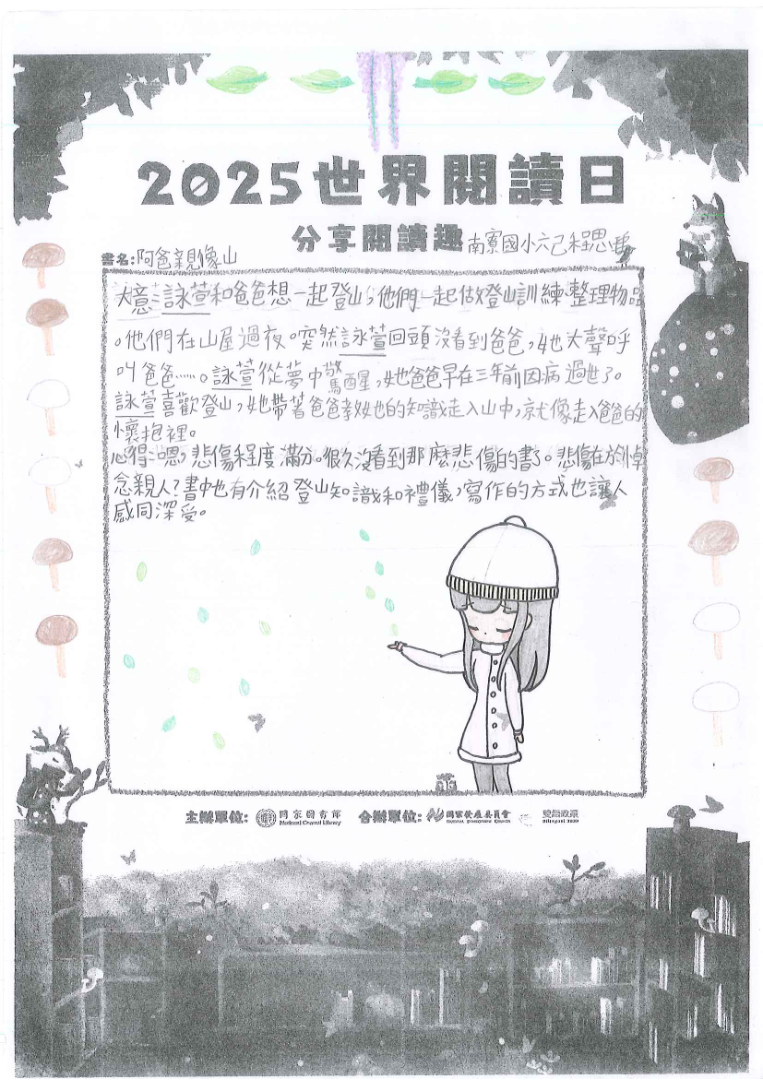 2025世界閱讀日
分享閱讀趣
南寮國小六己程思
書名:阿爸親像山
大意:詠萱和爸爸想一起登山,他們一起做登山訓練、整理物品
。他們在山屋過夜。突然詠萱回頭沒看到爸爸,她大聲呼
叫爸爸……。詠萱從夢中驚醒,她爸爸早在三年前因病過世了。
詠萱喜歡登山,她帶著爸爸教她的知識走入山中,就像走入爸爸的
懷抱裡。
心得:嗯,悲傷程度滿分。很久沒看到那麼悲傷的書了。悲傷在於悼
念親人?書中也有介紹登山知識和禮儀,寫作的方式也讓人
感同深受。
主辦單位: 國家圖書館 合辦單位: 國家發展委員會 雙語政策
National Central Library National Development Council Bilingual 2030